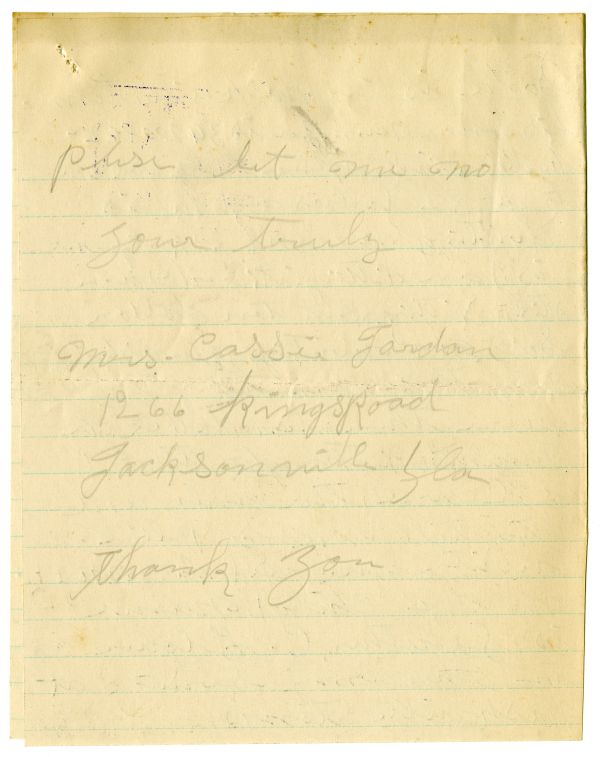 Plese let me no
your truly
Mrs. Cassie Jordan
1266 Kings Road
Jacksonville Fla
thank you